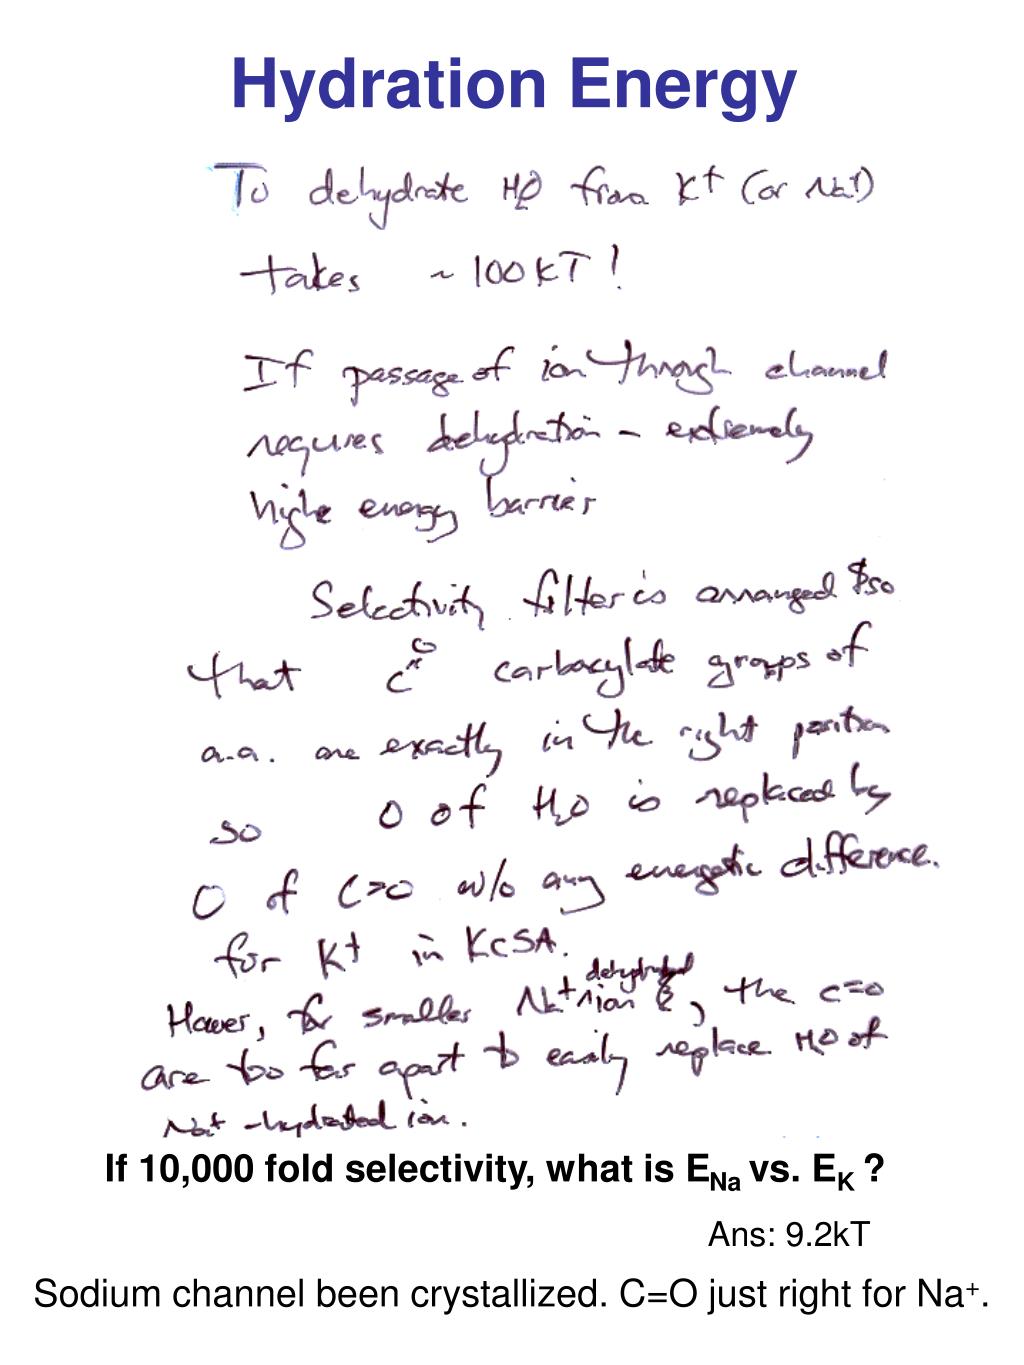 Hydration Energy
To dehydrate H2O from K+ (or Na+)
takes ~ 100 kT !
If passage of ion through channel
requires dehydration – extremely
high energy barrier
Selectivity filter is arranged so
that C=O carboxylate groups of
a.a. are exactly in the right position
so O of H2O is replaced by
O of C=O w/o any energetic difference.
for K+ in KcSA.
dehydrated
However, for smaller Na+ ion, the C=O
are too far apart to easily replace H2O of
Na+ -hydrated ion.
If 10,000 fold selectivity, what is ENa vs. EK ?
Ans: 9.2kT
Sodium channel been crystallized. C=O just right for Na+.